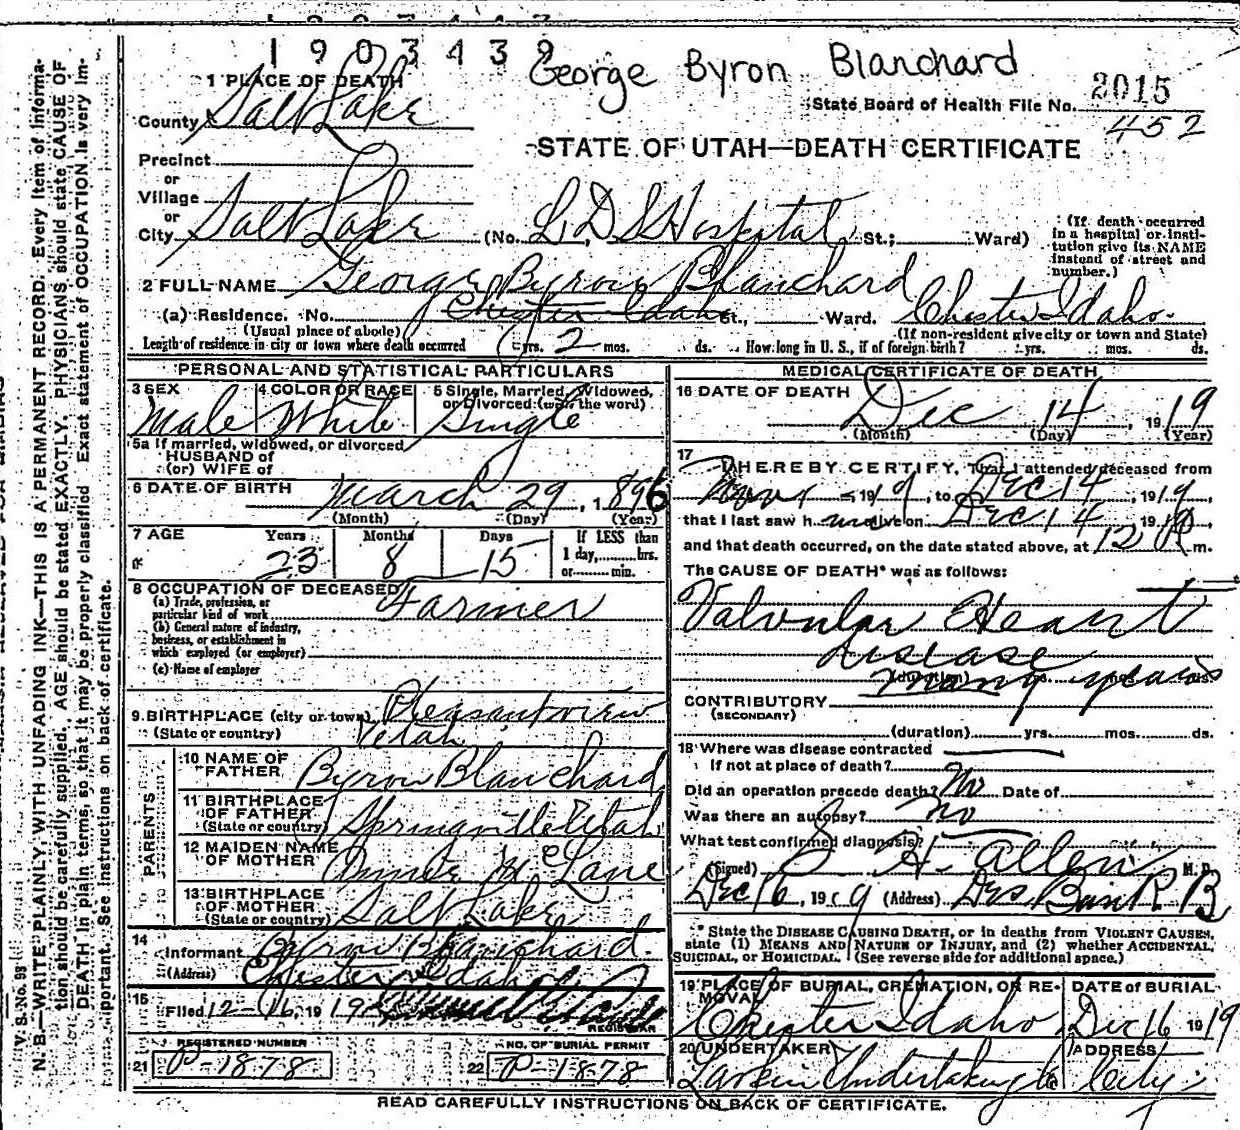 1903439
George Byron Blanchard
State Board of Health File No. 2015
452
STATE OF UTAH—DEATH CERTIFICATE
1 PLACE OF DEATH
County Salt Lake
Precinct
or
Village
or
City Salt Lake (No. L D S Hospital St.; Ward)
(If death occurred in a hospital or institution give its NAME instead of street and number.)
2 FULL NAME George Byron Blanchard
(a) Residence. No. Chester Idaho St., Ward. Chester Idaho.
(Usual place of abode) (If non-resident give city or town and State)
Length of residence in city or town where death occurred yrs. 2 mos. ds. How long in U. S., if of foreign birth? yrs. mos. ds.
PERSONAL AND STATISTICAL PARTICULARS
3 SEX Male
4 COLOR OR RACE White
5 Single, Married, Widowed, or Divorced (write the word) Single
5a If married, widowed, or divorced
HUSBAND of
(or) WIFE of
6 DATE OF BIRTH March 29, 1896
(Month) (Day) (Year)
7 AGE Years 23 Months 8 Days 15 If LESS than 1 day, hrs. or min.
8 OCCUPATION OF DECEASED Farmer
(a) Trade, profession, or particular kind of work
(b) General nature of industry, business, or establishment in which employed (or employer)
(c) Name of employer
9. BIRTHPLACE (city or town) Pleasantview
(State or country) Utah
PARENTS
10 NAME OF FATHER Byron Blanchard
11 BIRTHPLACE OF FATHER (State or country) Springville Utah
12 MAIDEN NAME OF MOTHER Annie McLane
13 BIRTHPLACE OF MOTHER (State or country) Salt Lake
14 Informant Byron Blanchard
(Address) Chester Idaho
15 Filed 12-16, 1919
REGISTRAR
REGISTERED NUMBER
21 P-1878
NO. OF BURIAL PERMIT
22 P-1878
MEDICAL CERTIFICATE OF DEATH
16 DATE OF DEATH Dec 14, 1919
(Month) (Day) (Year)
17 I HEREBY CERTIFY, That I attended deceased from
Nov 1 1919, to Dec 14, 1919,
that I last saw him alive on Dec 14 1919
and that death occurred, on the date stated above, at 12 m.
The CAUSE OF DEATH* was as follows:
Valvular Heart
disease
(duration) many years
CONTRIBUTORY
(SECONDARY)
(duration) yrs. mos. ds.
18 Where was disease contracted
If not at place of death?
Did an operation precede death? No Date of
Was there an autopsy? No
What test confirmed diagnosis?
(Signed) S H Allen M. D.
Dec 16, 1919 (Address)
* State the DISEASE CAUSING DEATH, or in deaths from VIOLENT CAUSES, state (1) MEANS AND NATURE OF INJURY, and (2) whether ACCIDENTAL, SUICIDAL, or HOMICIDAL. (See reverse side for additional space.)
19 PLACE OF BURIAL, CREMATION, OR REMOVAL Chester Idaho
DATE of BURIAL Dec 16 1919
20 UNDERTAKER Larkin Undertaking Co
ADDRESS City
READ CAREFULLY INSTRUCTIONS ON BACK OF CERTIFICATE.
V. S. No. 98
N. B.—WRITE PLAINLY, WITH UNFADING INK—THIS IS A PERMANENT RECORD. Every item of information should be carefully supplied. AGE should be stated EXACTLY. PHYSICIANS should state CAUSE OF DEATH in plain terms, so that it may be properly classified. Exact statement of OCCUPATION is very important. See instructions on back of certificate.